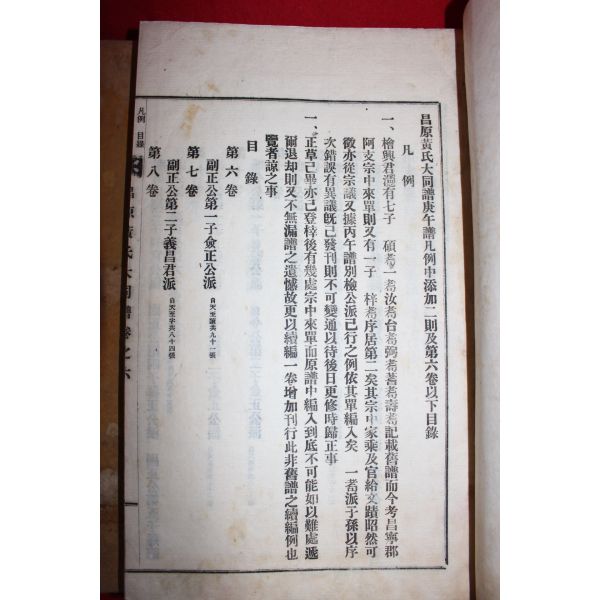 昌原黃氏大同譜庚午譜凡例中添加二則及第六卷以下目錄
凡例
一、檜興君澗有七子 碩耉一耉汝耉台耉弼耉蓍耉壽耉記載舊譜而今考昌寧郡
阿支宗中來單則又有一子 梓耉序居第二矣其宗中家乘及官給文蹟昭然可
徵亦從宗議又據丙午譜別檢公派已行之例依其單編入矣 一耉派子孫以序
次錯誤有異議旣已發刊則不可變通以待後日更修時歸正事
一、正草已畢亦已登梓後有幾處宗中來單而原譜中編入到底不可能如以難處遞
爾退却則又不無漏譜之遺憾故更以續編一卷增加刊行此非舊譜之續編例也
覽者諒之事
目錄
第六卷
副正公第一子僉正公派 自天至讓共九十一張
第七卷
副正公第二子義昌君派 自天至字共八十四張
第八卷
凡例 目錄
昌原黃氏大同譜卷之六